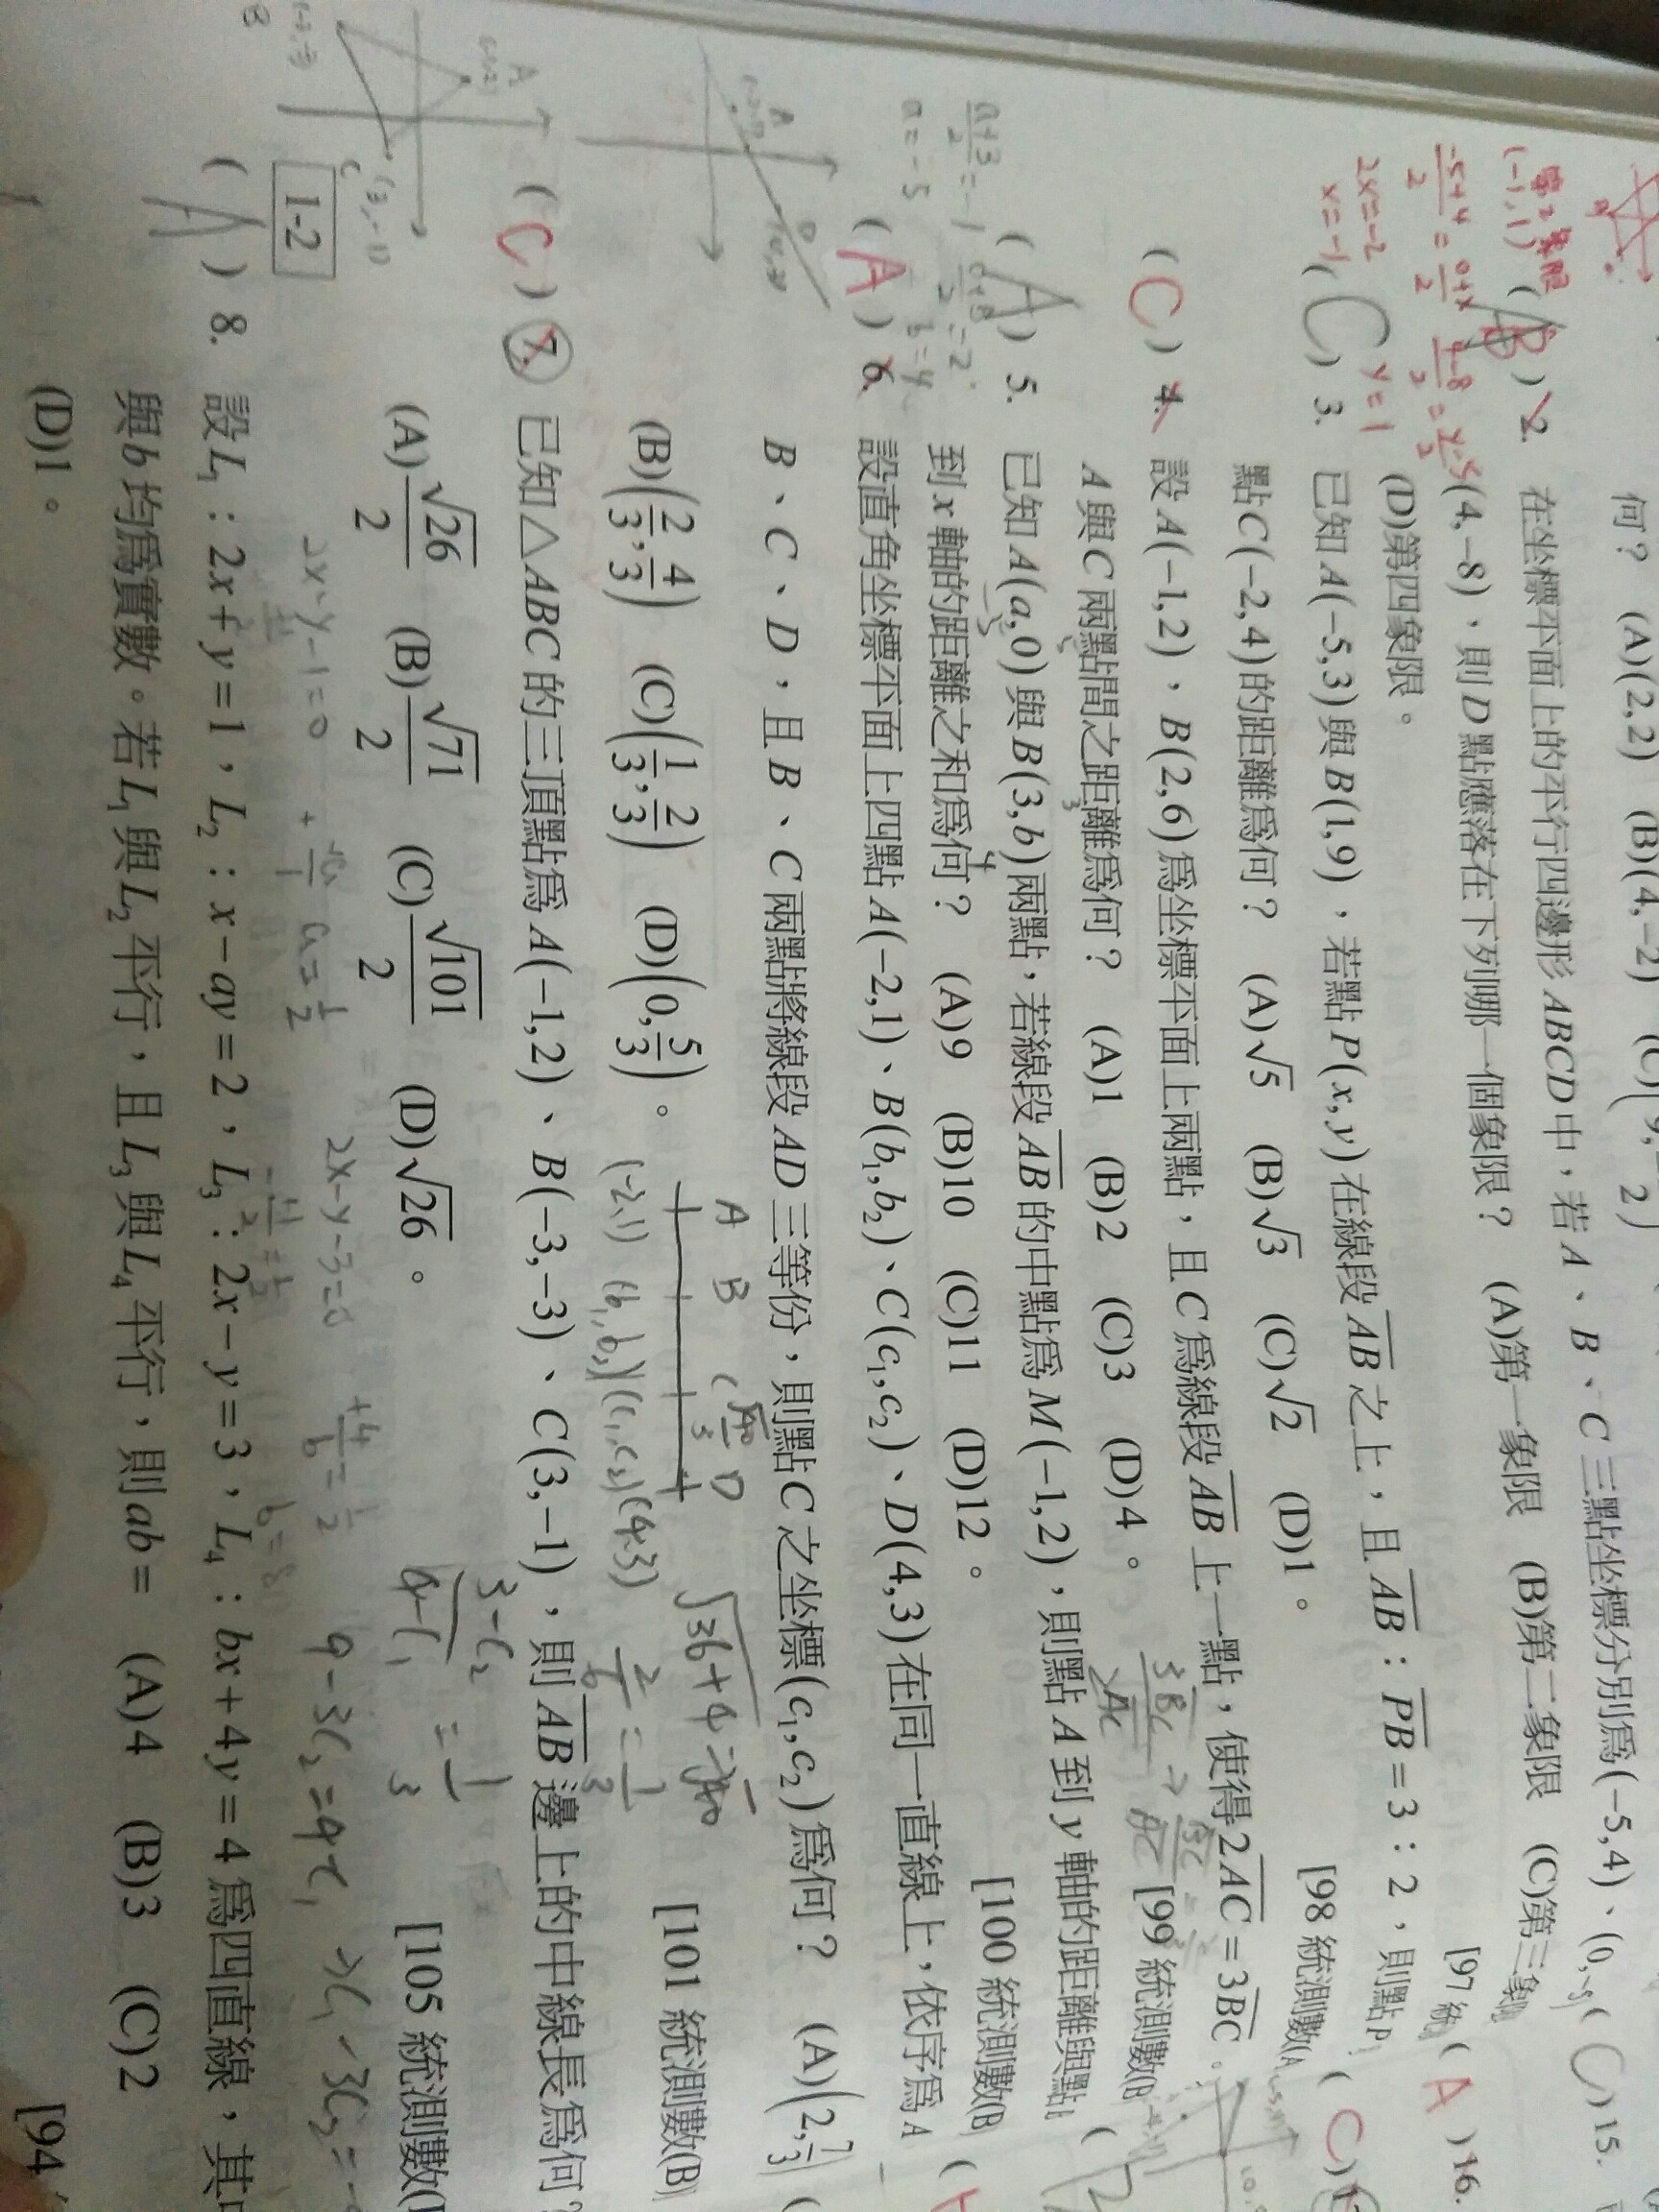 何？ (A)(2,2) (B)(4,-2)
( B ) 2. 在坐標平面上的平行四邊形ABCD中，若A、B、C三點坐標分別為(-5,4)、(0,-5)
(4,-8)，則D點應落在下列哪一個象限？ (A)第一象限 (B)第二象限 (C)第三象
(D)第四象限。 [97統
( C ) 3. 已知A(-5,3)與B(1,9)，若點P(x,y)在線段AB之上，且AB：PB=3：2，則點P
點C(-2,4)的距離為何？ (A)√5 (B)√3 (C)√2 (D)1。 [98統測數(A
( C ) 4. 設A(-1,2)、B(2,6)為坐標平面上兩點，且C為線段AB上一點，使得2AC=3BC，
A與C兩點間之距離為何？ (A)1 (B)2 (C)3 (D)4。 [99統測數(B
( A ) 5. 已知A(a,0)與B(3,b)兩點，若線段AB的中點為M(-1,2)，則點A到y軸的距離與點
到x軸的距離之和為何？ (A)9 (B)10 (C)11 (D)12。 [100統測數(B
( A ) 6. 設直角坐標平面上四點A(-2,1)、B(b₁,b₂)、C(c₁,c₂)、D(4,3)在同一直線上，依序為A
B、C、D，且B、C兩點將線段AD三等份，則點C之坐標(c₁,c₂)為何？ (A)(2,7/3)
(B)(2/3,4/3) (C)(1/3,2/3) (D)(0,5/3)。 [101統測數(B)
( C ) 7. 已知△ABC的三頂點為A(-1,2)、B(-3,-3)、C(3,-1)，則AB邊上的中線長為何？
(A)√26/2 (B)√71/2 (C)√101/2 (D)√26。 [105統測數(
1-2
( A ) 8. 設L₁：2x+y=1，L₂：x-ay=2，L₃：2x-y=3，L₄：bx+4y=4為四直線，其中
與b均為實數。若L₁與L₂平行，且L₃與L₄平行，則ab= (A)4 (B)3 (C)2
(D)1。 [94
( C ) 15.
( A ) 16.
第2象限
(-1,1)
-5+4/2 = 0+x/2
2x=-2
x=-1
y=1
a+3/2=-1
a=-5
b=4
A B C D
(-2,1) (b₁,b₂) (c₁,c₂) (4,3)
3-c₂/4-c₁ = 1/3
9-3c₂=4-c₁
2x-y-1=0
a=1/2
2x-y-3=0
b=8